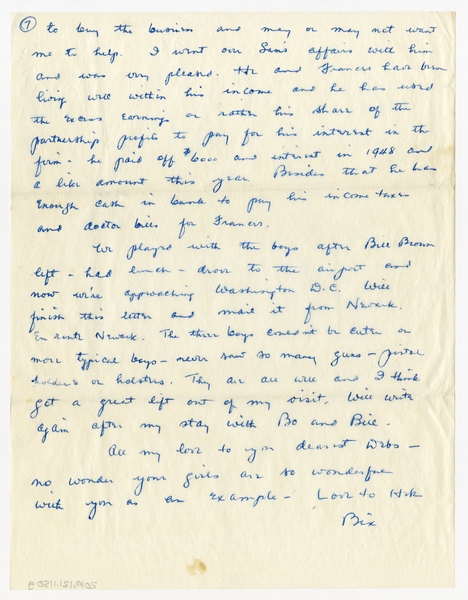 7
to buy the business and may or may not want
me to help. I went over Sam's affairs with him
and was very pleased. He and Frances have been
living well within his income and he has used
the excess earnings or rather his share of the
partnership profits to pay for his interest in the
firm - he paid off $6000 and interest in 1948 and
a like amount this year. Besides that he has
enough cash in bank to pay his income taxes
and doctor bills for Frances.
We played with the boys after Bill Brown
left - had lunch - drove to the airport and
now we're approaching Washington D.C. Will
finish this letter and mail it from Newark.
En route Newark. The three boys couldn't be cuter or
more typical boys - never saw so many guns - pistol
holders or holsters. They are all well and I think
got a great lift out of my visit. Will write
again after my stay with Bo and Bill.
All my love to you dearest Debs -
no wonder your girls are so wonderful
with you as an example - Love to
Bix
2019.121.1150 g